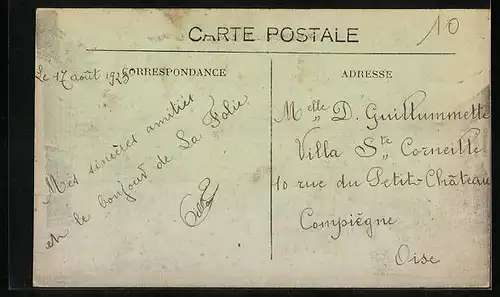 CARTE POSTALE
10
CORRESPONDANCE
ADRESSE
Le 17 août 1925
Mes sincères amitiés
et le bonjour de La Folie
Melle D. Guillummette
Villa Ste Corneille
10 rue du Petit-Château
Compiègne
Oise